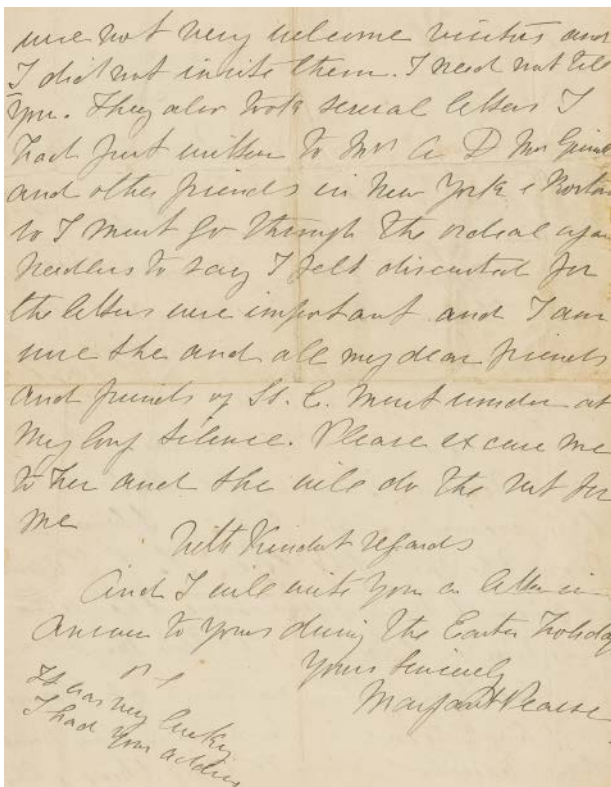 were not very welcome visitors and
I did not invite them. I need not tell
you. They also took several letters I
had just written to Mrs A D
and other friends in New York &
so I must go through the ordeal again
Needless to say I felt disconcerted for
the letters were important and I am
sure she and all my dear friends
and friends of St. E. must wonder at
my long silence. Please excuse me
to her and she will do the rest for
me
With kindest regards
And I will write you a letter in
answer to yours during the Easter Holiday
Yours Sincerely
Margaret Pearse
P S
It was very lucky
I had your address